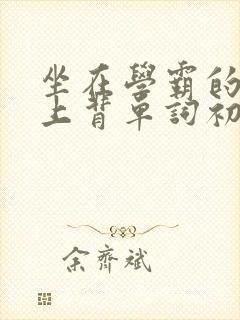 坐在學霸的
上背單詞初
余齊斌